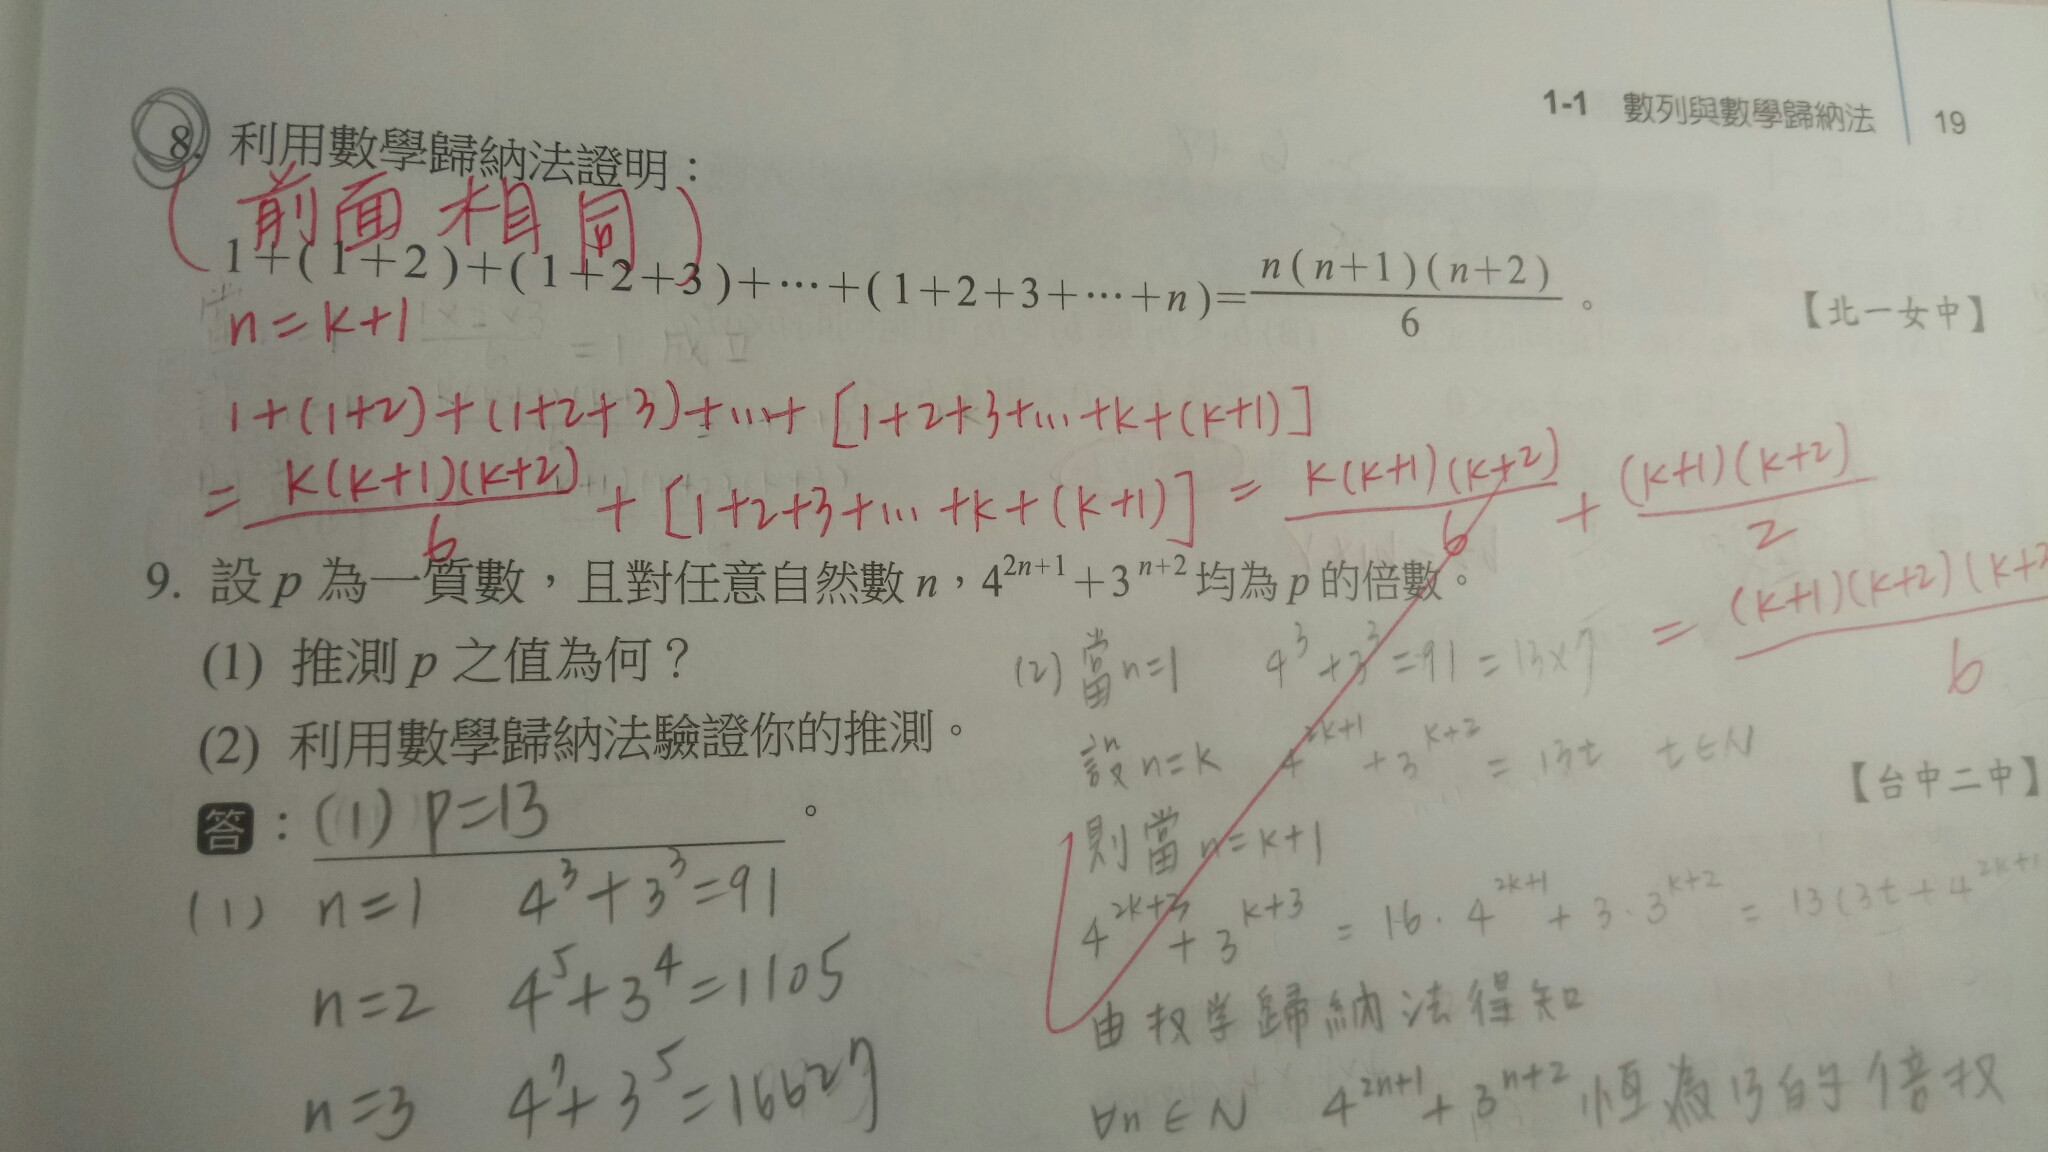 1-1 數列與數學歸納法 19
8. 利用數學歸納法證明：
(前面相同)
1+(1+2)+(1+2+3)+⋯+(1+2+3+⋯+n)=n(n+1)(n+2)/6。
【北一女中】
n=k+1
1×2×3/6 = 1 成立
1+(1+2)+(1+2+3)+...+[1+2+3+...+k+(k+1)]
= k(k+1)(k+2)/6 + [1+2+3+...+k+(k+1)] = k(k+1)(k+2)/6 + (k+1)(k+2)/2
= (k+1)(k+2)(k+ /6
9. 設 p 為一質數，且對任意自然數 n，4^{2n+1}+3^{n+2} 均為 p 的倍數。
(1) 推測 p 之值為何？
(2) 利用數學歸納法驗證你的推測。
【台中二中】
答：(1) p=13。
(1) n=1 4^3+3^3=91
n=2 4^5+3^4=1105
n=3 4^7+3^5=16627
(2) 當n=1 4^3+3^3=91=13×7
設n=k 4^{2k+1}+3^{k+2}=13t t∈N
則當n=k+1
4^{2k+3}+3^{k+3}=16·4^{2k+1}+3·3^{k+2}=13(3t+4^{2k+1}
由数学歸納法得知
∀n∈N 4^{2n+1}+3^{n+2} 恆為13的倍数